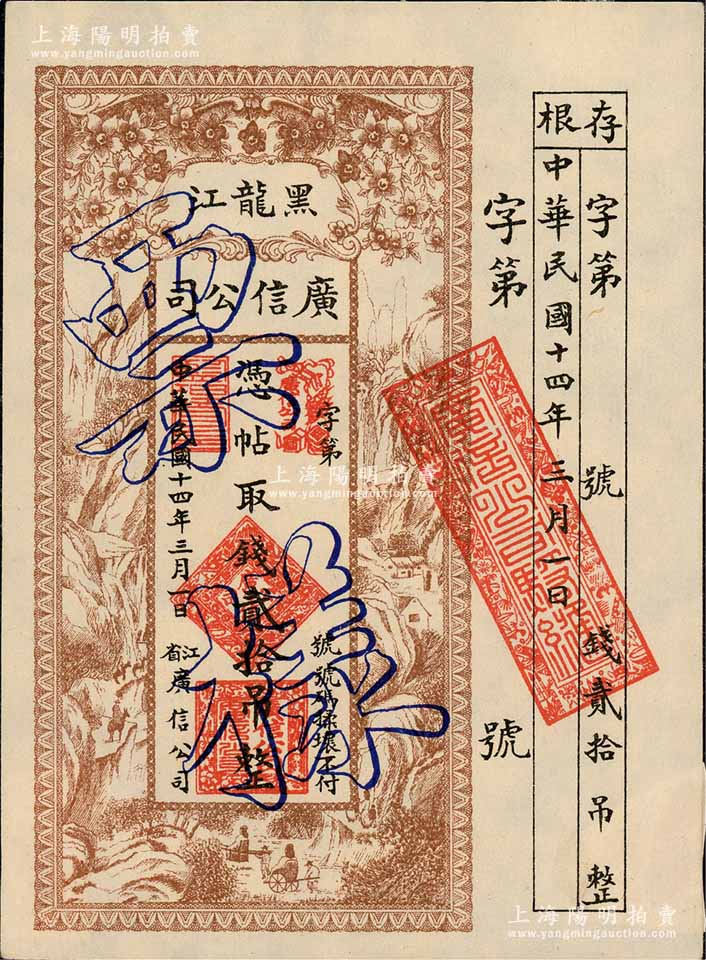 上海陽明拍賣
www.yangmingauction.com
存根
字第　號　錢貳拾吊整
中華民國十四年三月一日
字第　號
黑龍江
廣信公司
字第　號　號碼揉壞不付
憑帖取錢貳拾吊整
中華民國十四年三月一日
江省廣信公司
上海陽明拍賣
www.yangmingauction.com
上海陽明拍賣
www.yangmingauction.com